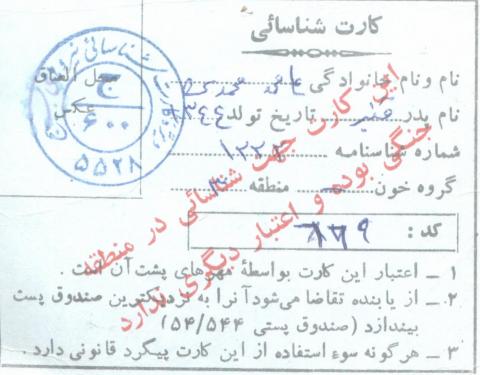 کارت شناسائی
نام و نام خانوادگی محمد
نام پدر تاریخ تولد ۱۳۴۴
شماره شناسنامه
گروه خون منطقه
محل الصاق
عکس
۶۰۰
۵۵۲۸
کد :
این کارت جهت شناسائی در منطقه
جنگی بوده و اعتبار دیگری ندارد
۱ – اعتبار این کارت بواسطهٔ مهرهای پشت آن است .
۲ – از یابنده تقاضا می‌شود آنرا به نزدیکترین صندوق پست
بیندازد (صندوق پستی ۵۴/۵۴۴)
۳ – هرگونه سوء استفاده از این کارت پیگرد قانونی دارد .